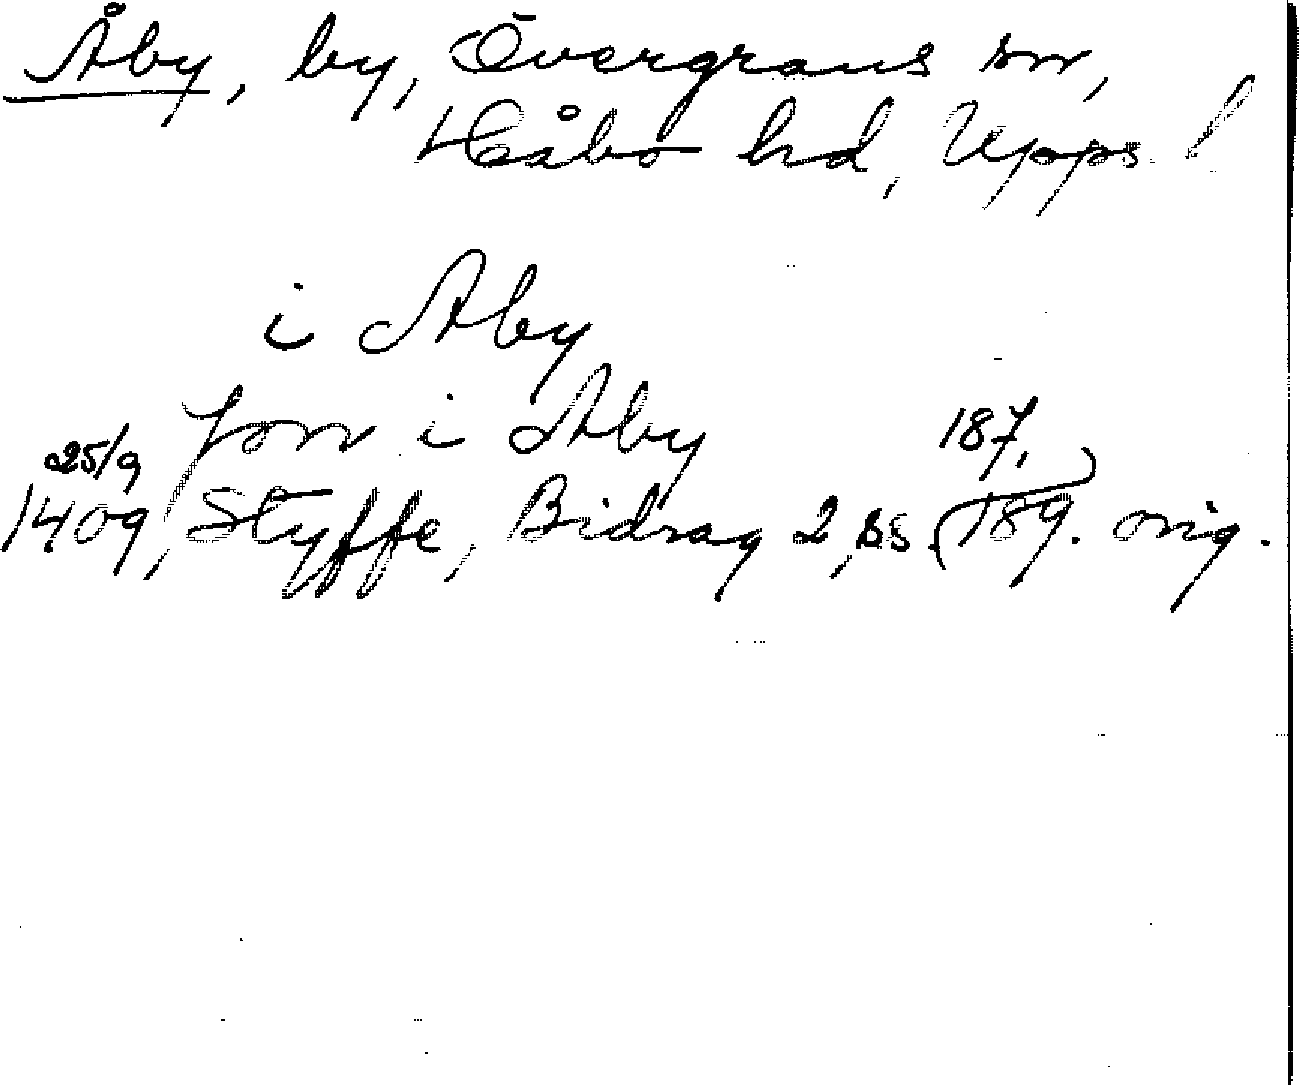 Åby, by, Övergrans sn,
Håbo hd, Upps. l
i Aby
Jon i Aby
25/9 187,
1409, Styffe, Bidrag 2, ss. (189). orig.